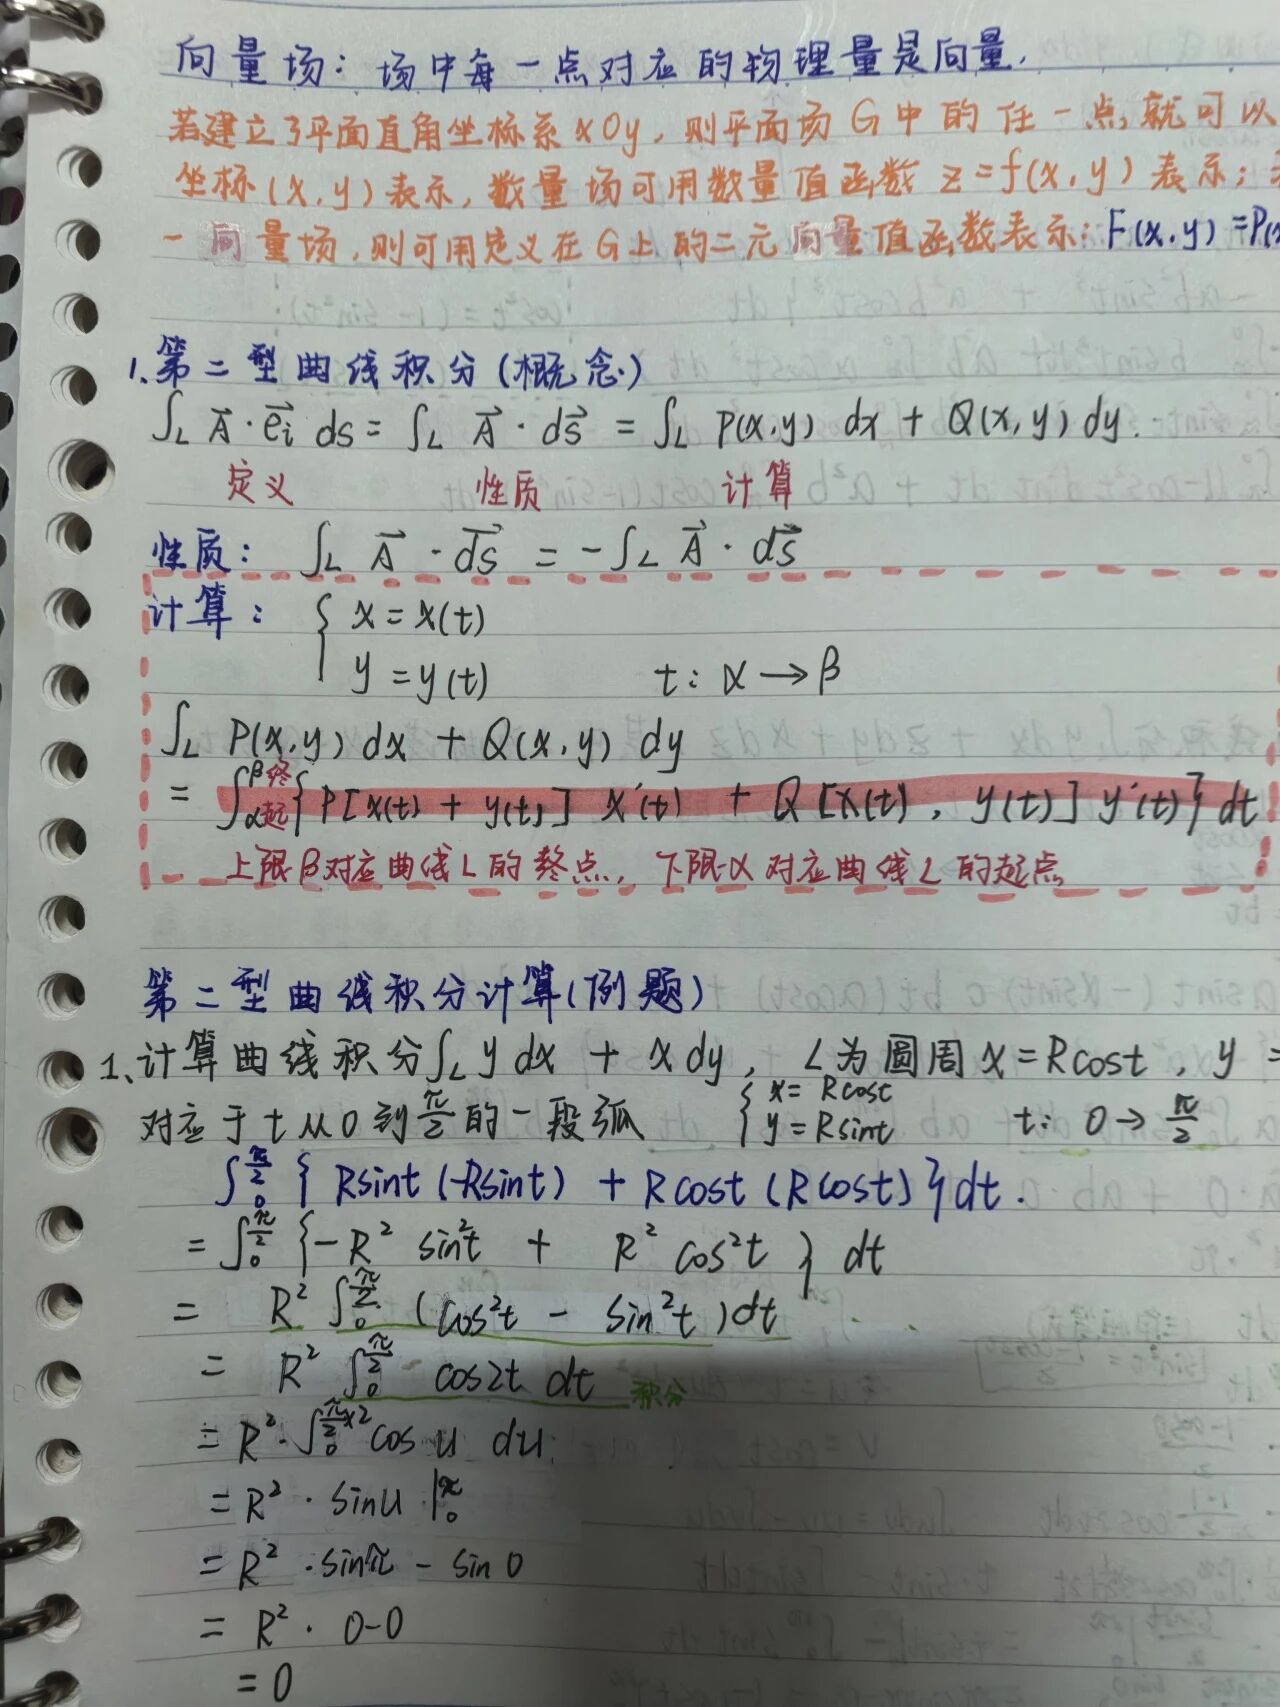 向量场：场中每一点对应的物理量是向量.
若建立了平面直角坐标系xOy，则平面场G中的任一点就可以
坐标(x,y)表示，数量场可用数量值函数 z=f(x,y)表示；
一向量场，则可用定义在G上的二元向量值函数表示：F(x,y)=P(
1、第二型曲线积分(概念)
∫_L A⃗·e⃗_i ds = ∫_L A⃗·ds⃗ = ∫_L P(x,y) dx + Q(x,y) dy.
定义 性质 计算
性质： ∫_L A⃗·ds⃗ = -∫_L A⃗·ds⃗
计算： { x=x(t)
y=y(t) t: α→β
∫_L P(x,y) dx + Q(x,y) dy
= ∫_α起^β终 {P[x(t)+y(t)] x'(t) + Q[x(t), y(t)] y'(t)} dt
上限β对应曲线L的终点，下限α对应曲线L的起点
第二型曲线积分计算(例题)
1、计算曲线积分∫_L y dx + x dy，L为圆周x=Rcost, y=
对应于t从0到π/2的一段弧 { x=Rcost y=Rsint t: 0→π/2
∫_0^{π/2} {Rsint(-Rsint) + Rcost(Rcost)}dt.
= ∫_0^{π/2} {-R² sin²t + R² cos²t} dt
= R² ∫_0^{π/2} (cos²t - sin²t)dt
= R² ∫_0^{π/2} cos2t dt 积分
= R²·∫_0^{π/2×2} cosu du
= R²·sinu |_0^π
= R²·sinπ - sin0
= R²·0-0
=0